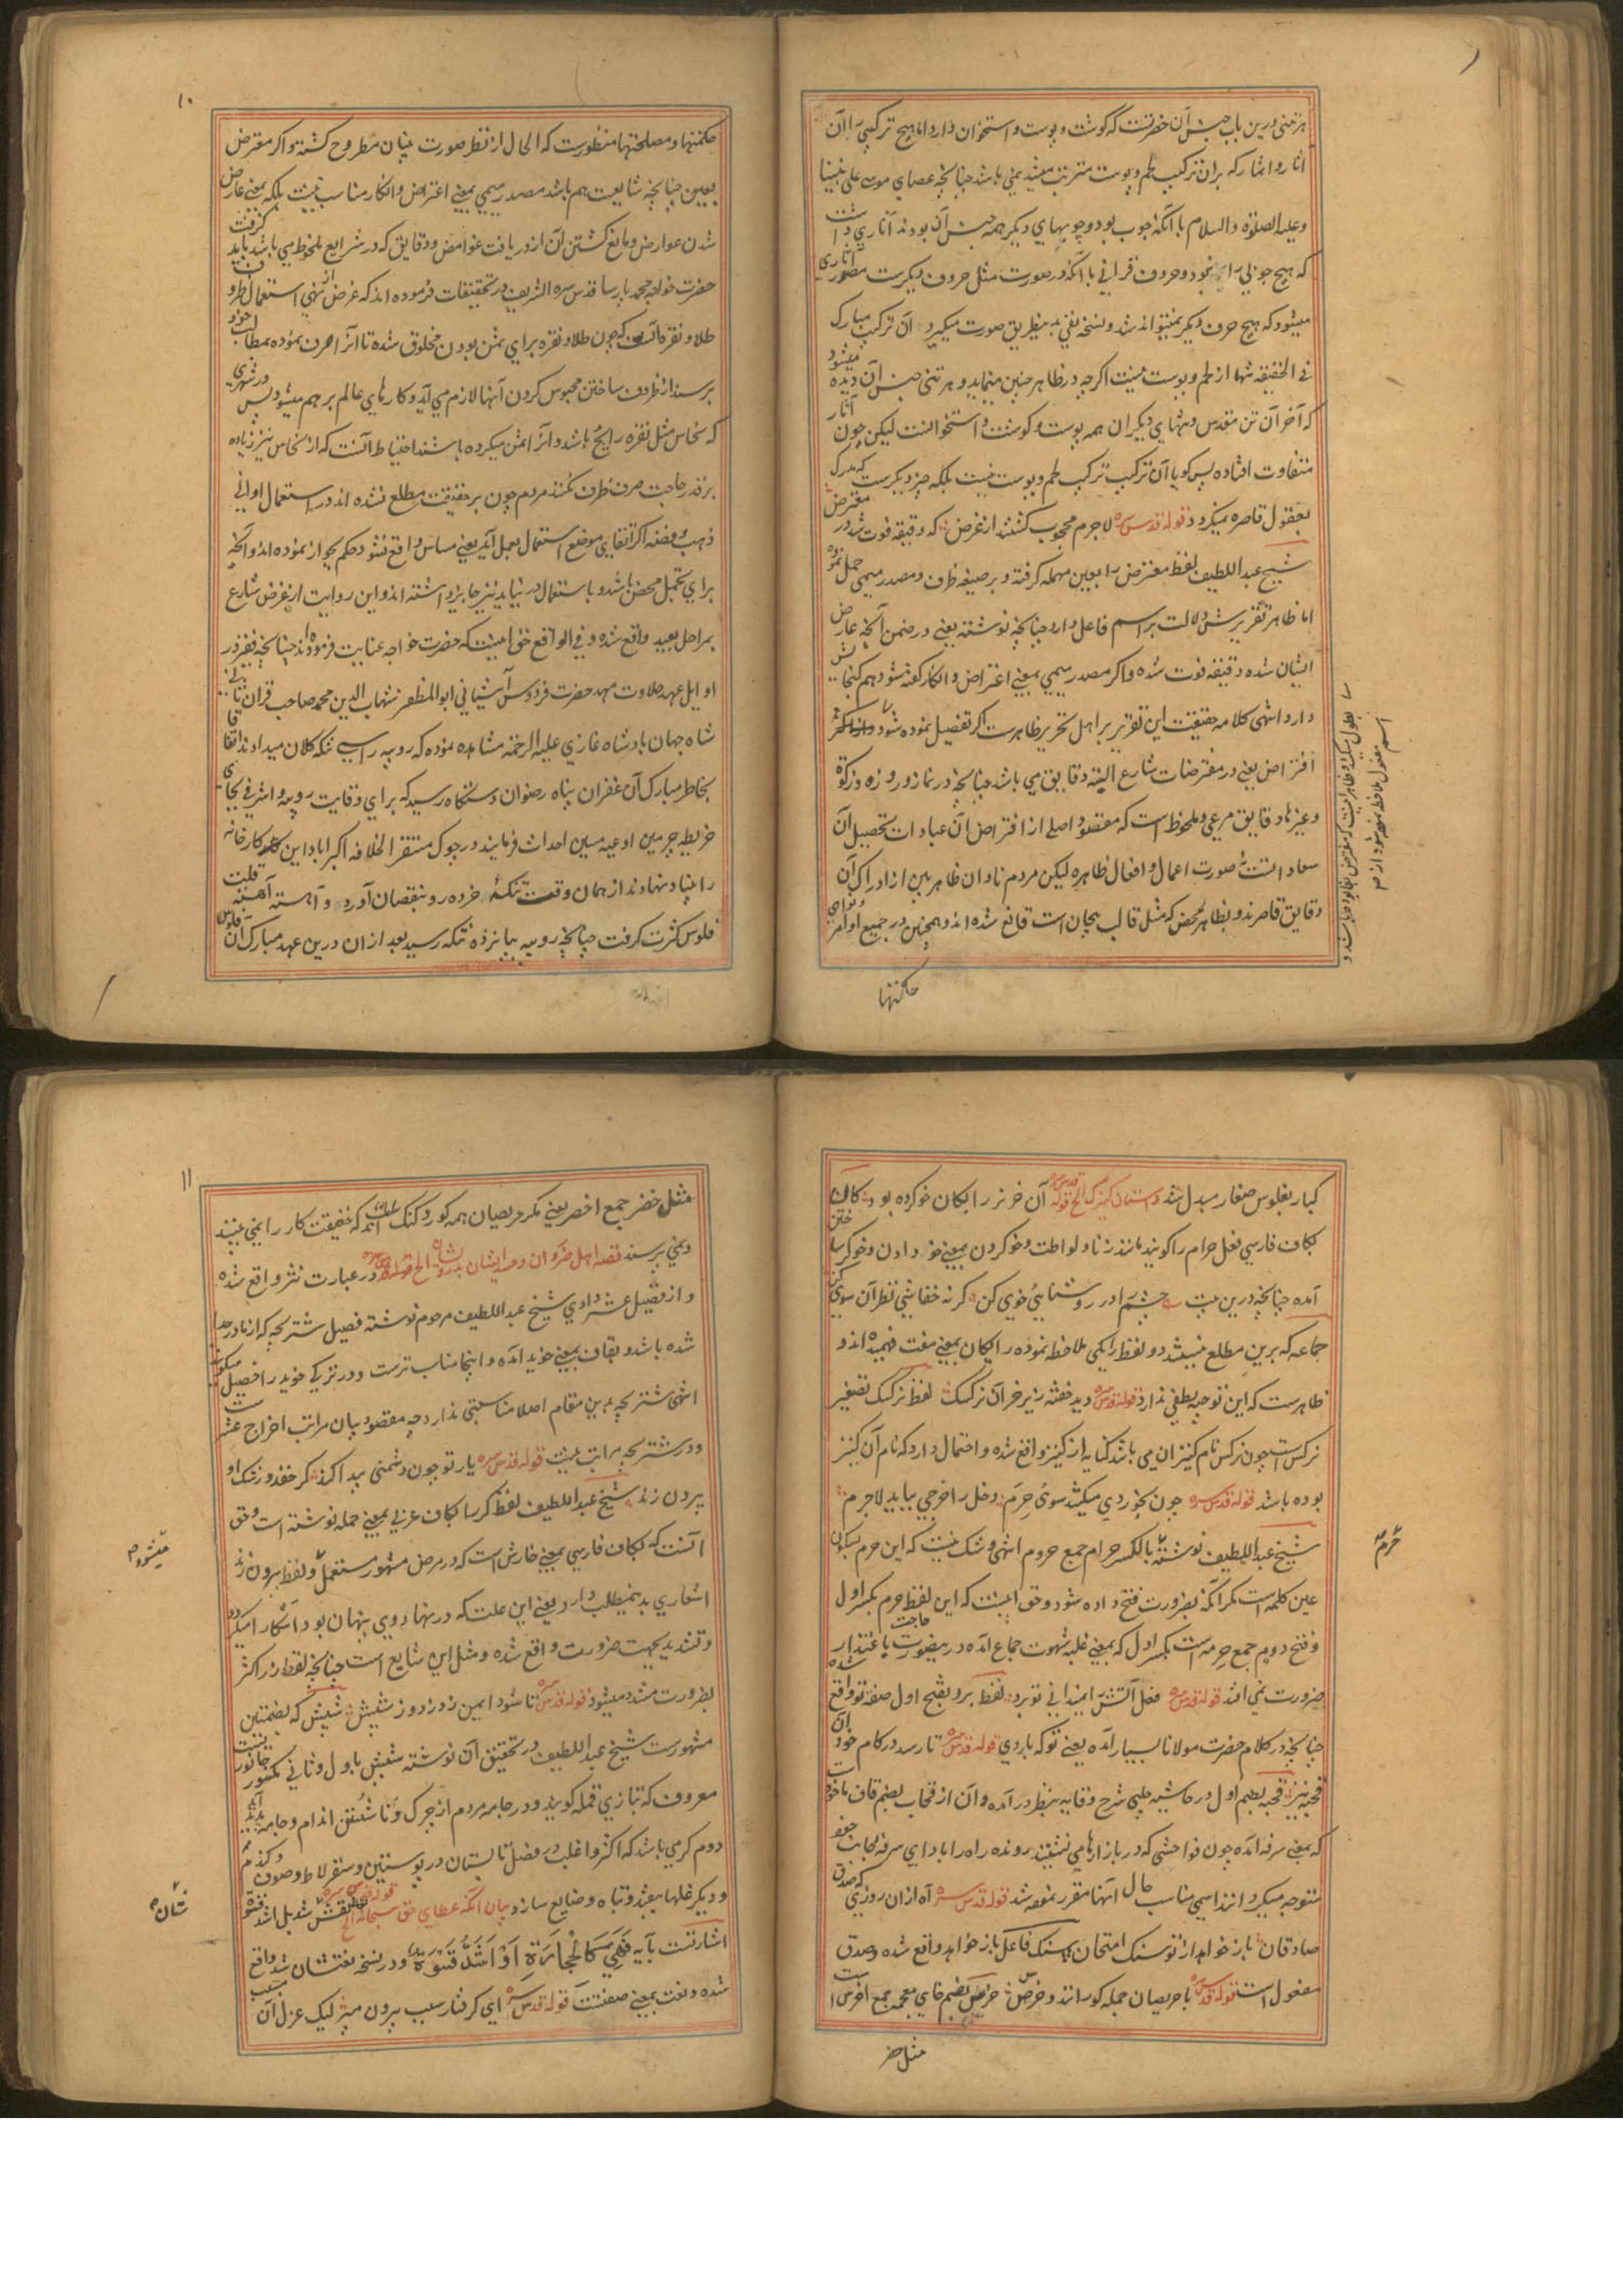 هر تنی درین باب جنس آن حضرتست که گوشت و پوست و استخوان دارد اما هیچ ترکیبی را آن
اثار و اثمار که بران ترکیب لحم و پوست مترتب میشد نمی باشد چنانچه عصای موسی علی نبینا
وعلیه الصلوة والسلام با آنکه چوب بود و چوبهای دیگر همه جنس آن بودند آثاری داشت
که هیچ چوبی را نبود و حروف قرآنی با آنکه در صورت مثل حروف دیگرست مصدر آثاری
میشود که هیچ حرف دیگر نمیتواند شد و نسخه نفی بدینطریق صورت میگیرد آن ترکیب مبارک
فی الحقیقه تنها از لحم و پوست نیست اگرچه در ظاهر چنین مینماید و هر تنی جنس آن دیده میشود
که آخر آن تن مقدس و تنهای دیگران همه پوست و گوشت و استخوانست لیکن چون آثار
متفاوت افتاده پس گویا آن ترکیب ترکیب لحم و پوست نیست بلکه چیز دیگرست که مدرک
بعقول قاصره نمیگردد قوله قدس سره لاجرم محجوب گشتند از غرض که دقیقه فوت شد در مفترض
شیخ عبداللطیف لفظ معترض را بعین مهمله گرفته و بر صیغه ظرف و مصدر میمی حمل نموده
اما ظاهر تقریرش دلالت بر اسم فاعل دارد چنانچه نوشته یعنی در ضمن آنچه عارض
ایشان شده دقیقه فوت شده و اگر مصدر میمی بمعنی اعتراض و انکار گفته شود هم گنجایش
دارد انتهی کلامه حقیقت این تقریر بر اهل تحریر ظاهرست اگر تفصیل نموده شود
افتراض یعنی در مفترضات شارع البته دقایق می باشد چنانچه در نماز و روزه و زکوة
و غیرها دقایق مرعی و ملحوظ است که مقصود اصلی از افتراض آن عبادات تحصیل آن
سعاد است نه صورت اعمال و افعال ظاهره لیکن مردم نادان ظاهر بین از ادراک آن
دقایق قاصرند و بظاهر محض که مثل قالب بیجان است قانع شده اند و همچنین در جمیع اوامر و نواهی
حکمتها
حکمتها و مصلحتها منظورست که الحال از نظر صورت بینان مطروح گشته و اگر معترض
بعین چنانچه شایعست هم باشد مصدر میمی بمعنی اعتراض و انکار مناسب نیست بلکه بمعنی عارض
شدن عوارض و مانع گشتن آن از دریافت غوامض و دقایق که در شرایع ملحوظ می باشد باید گرفت
حضرت خواجه محمد پارسا قدس سره الشریف در تحقیقات فرموده اند که غرض از نهی استعمال ظروف
طلا و نقره آنست که چون طلا و نقره برای ثمن بودن مخلوق شده تا آنرا صرف نموده بمطالب خود
برسند از ظروف ساختن محبوس کردن آنها لازم می آید و کارهای عالم برهم میشود پس در شهری
که نحاس مثل نقره رایج باشد و آنرا ثمن میکرده باشند احتیاط آنست که از نحاس نیز زیاده
بر قدر حاجت صرف ظرف نکنند مردم چون بر حقیقت مطلع نشده اند در استعمال اوانی
ذهب و فضه اگر اتقای موضع استعمال بعمل آید یعنی مساس واقع نشود حکم بجواز نموده اند و آنچه
برای تجمل محض باشد و باستعمال در نیاید نیز جایز داشته اند و این روایت از غرض شارع
بمراحل بعید واقع شده و فی الواقع حق اینست که حضرت خواجه عنایت فرموده اند چنانچه فقیر در
اوایل عهد حلاوت مهد حضرت فردوس آشیانی ابوالمظفر شهاب الدین محمد صاحب قران ثانی
شاه جهان بادشاه غازی علیه الرحمة مشاهده نموده که روپیه را سی تنکه کلان میدادند اتفاقا
بخاطر مبارک آن غفران پناه رضوان دستگاه رسید که برای وقایت روپیه و اشرفی بجای
خریطه چرمین اوعیه مسین احداث فرمایند در چوک مستقر الخلافه اکبراباد این کارخانه
را بنیاد نهادند از همان وقت تنکه خرده رو بنقصان آورد و آهسته آهسته قلت
فلوس کثرت گرفت چنانچه روپیه بپانزده تنکه رسید بعد ازان درین عهد مبارک آن فلوس
۱۰
کبار بفلوس صغار مبدل شد داستان کنیزک الخ قوله قدس سره آن خر نر را بگان خو کرده بود گان
بکاف فارسی فعل حرام را گویند مانند زنا و لواطت و خو کردن بمعنی خو دادن و خوگر ساختن
آمده چنانچه درین بیت چشم را در روشنایی خوی کن گرنه خفاشی نظر آن سوی کن
جماعه که برین مطلع نیستند و لفظ رایگی ملاحظه نموده رایگان بمعنی مفت فهمیده اند و
ظاهرست که این توجیه لطفی ندارد قوله قدس سره دید خفته زیر خر آن نرگسک لفظ نرگسک تصغیر
نرگس است چون نرگس نام کنیزان می باشد کنایه از کنیز واقع شده و احتمال دارد که نام آن کنیز
بوده باشد قوله قدس سره چون بخوردی میکشد سوی حرم دخل را خرجی بباید لاجرم
شیخ عبداللطیف نوشته بالکسر حرام جمع حروم انتهی و شک نیست که این حرم بسکون
عین کلمه است مگر آنکه بضرورت فتح داده شود و حق اینست که این لفظ حرم بکسر اول
و فتح دویم جمع حرمه است بکسر اول که بمعنی غلبه شهوت جماع آمده درینصورت حاجت باعتذار
ضرورت نمی افتد قوله قدس سره فعل آتش را نمیدانی تو برد لفظ برد بفتح اول صفت تو واقع شده
چنانچه در کلام حضرت مولانا بسیار آمده یعنی تو که باردی قوله قدس سره تا رسد در کام خود آن
قحبه نیز قحبه بضم اول در حاشیه چلپی شرح وقایه بنظر درآمده و آن از قحاب بضم قاف ماخوذ است
که بمعنی سرفه آمده چون فواحشی که در بازارها می نشینند رونده راه را بادای سرفه بجانب خود
متوجه میکرد انذا اسمی مناسب حال آنها مقرر نموده شد قوله قدس سره آه ازان روزی که صدق
صادقان باز خواهد از تو سنگ امتحان سنگ فاعل باز خواهد واقع شده و صدق
مفعول است قوله قدس سره با حریصان جمله کورانند و خرس خرس بضم خای معجمه جمع اخرس است
مثل خضر
مثل خضر جمع اخضر یعنی مکر حریصان همه کور و کنگ ساخته اند که حقیقت کار را نمی بینند
و نمی پرسند قصه اهل ضروان و حسد ایشان بدرویشان الخ قوله قدس سره در عبارت نثر واقع شده
و از قصیل عشر دادی شیخ عبداللطیف مرحوم نوشته فصیل شتر بچه که از مادر جدا
شده باشد و بقاف بمعنی خوید آمده و اینجا مناسب ترست و در ترکی خوید را خصیل میگویند
انتهی شتر بچه بدین مقام اصلا مناسبتی ندارد چه مقصود بیان مراتب اخراج عشرست
و در شتر بچه مراتب نیست قوله قدس سره یار تو چون دشمنی پیدا کند گر حقد و رشک او
بیرون زند شیخ عبداللطیف لفظ کر را بکاف عربی بمعنی حمله نوشته است و حق
آنست که بکاف فارسی بمعنی خارش است که در مرض مشهور مستعمل و لفظ بیرون زند
اشعاری بدینمطلب دارد یعنی این علت که در نهاد وی پنهان بود آشکارا میگردد
و تشدید بجهت ضرورت واقع شده و مثل این شایع است چنانچه لفظ زر اکثر
بضرورت مشدد میشود قوله قدس سره تا شود ایمن ز دزد و از شپش شپش که بضمتین
مشهورست شیخ عبداللطیف در تحقیق آن نوشته شپش باول و ثانی مکسور جانوریست
معروف که بتازی قمله گویند و در جامه مردم از چرک و ناشستن اندام و جامه پدید آید
دوم کرمی باشد که اکثر و اغلب در فصل تابستان در پوستین و سقرلاط و صوف و گندم
و دیگر غلها بیفتد و تباه و ضایع سازد بیان آنکه عطای حق سبحانه الخ قوله قدس سره نقش شد بل اشد قسوة
اشارتست بآیه فَهِيَ كَالْحِجَارَةِ اَوْ اَشَدُّ قَسْوَةً و در نسخه نعتشان شد واقع
شده و نعت بمعنی صفتست قوله قدس سره ای گرفتار سبب بیرون مپر لیک عزل آن مسبب
۱۱
میشود م
حرم
نشان م